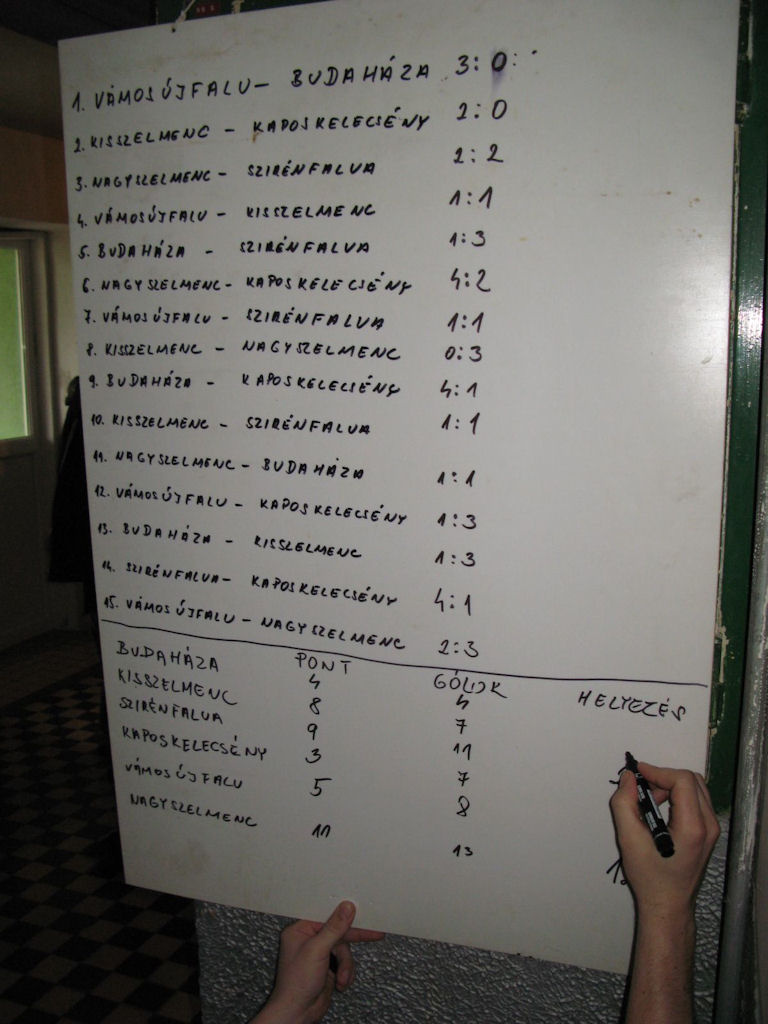 1. VÁMOSÚJFALU - BUDAHÁZA 3:0
2. KISSZELMENC - KAPOSKELECSÉNY 2:0
3. NAGYSZELMENC - SZIRÉNFALVA 2:2
4. VÁMOSÚJFALU - KISSZELMENC 1:1
5. BUDAHÁZA - SZIRÉNFALVA 1:3
6. NAGYSZELMENC - KAPOSKELECSÉNY 4:2
7. VÁMOSÚJFALU - SZIRÉNFALVA 1:1
8. KISSZELMENC - NAGYSZELMENC 0:3
9. BUDAHÁZA - KAPOSKELECSÉNY 4:1
10. KISSZELMENC - SZIRÉNFALVA 1:1
11. NAGYSZELMENC - BUDAHÁZA 1:1
12. VÁMOSÚJFALU - KAPOSKELECSÉNY 1:3
13. BUDAHÁZA - KISSZELMENC 1:3
14. SZIRÉNFALVA - KAPOSKELECSÉNY 4:1
15. VÁMOSÚJFALU - NAGYSZELMENC 2:3
PONT GÓLOK HELYEZÉS
BUDAHÁZA 4 4
KISSZELMENC 8 7
SZIRÉNFALVA 9 11
KAPOSKELECSÉNY 3 7
VÁMOSÚJFALU 5 8
NAGYSZELMENC 11 13